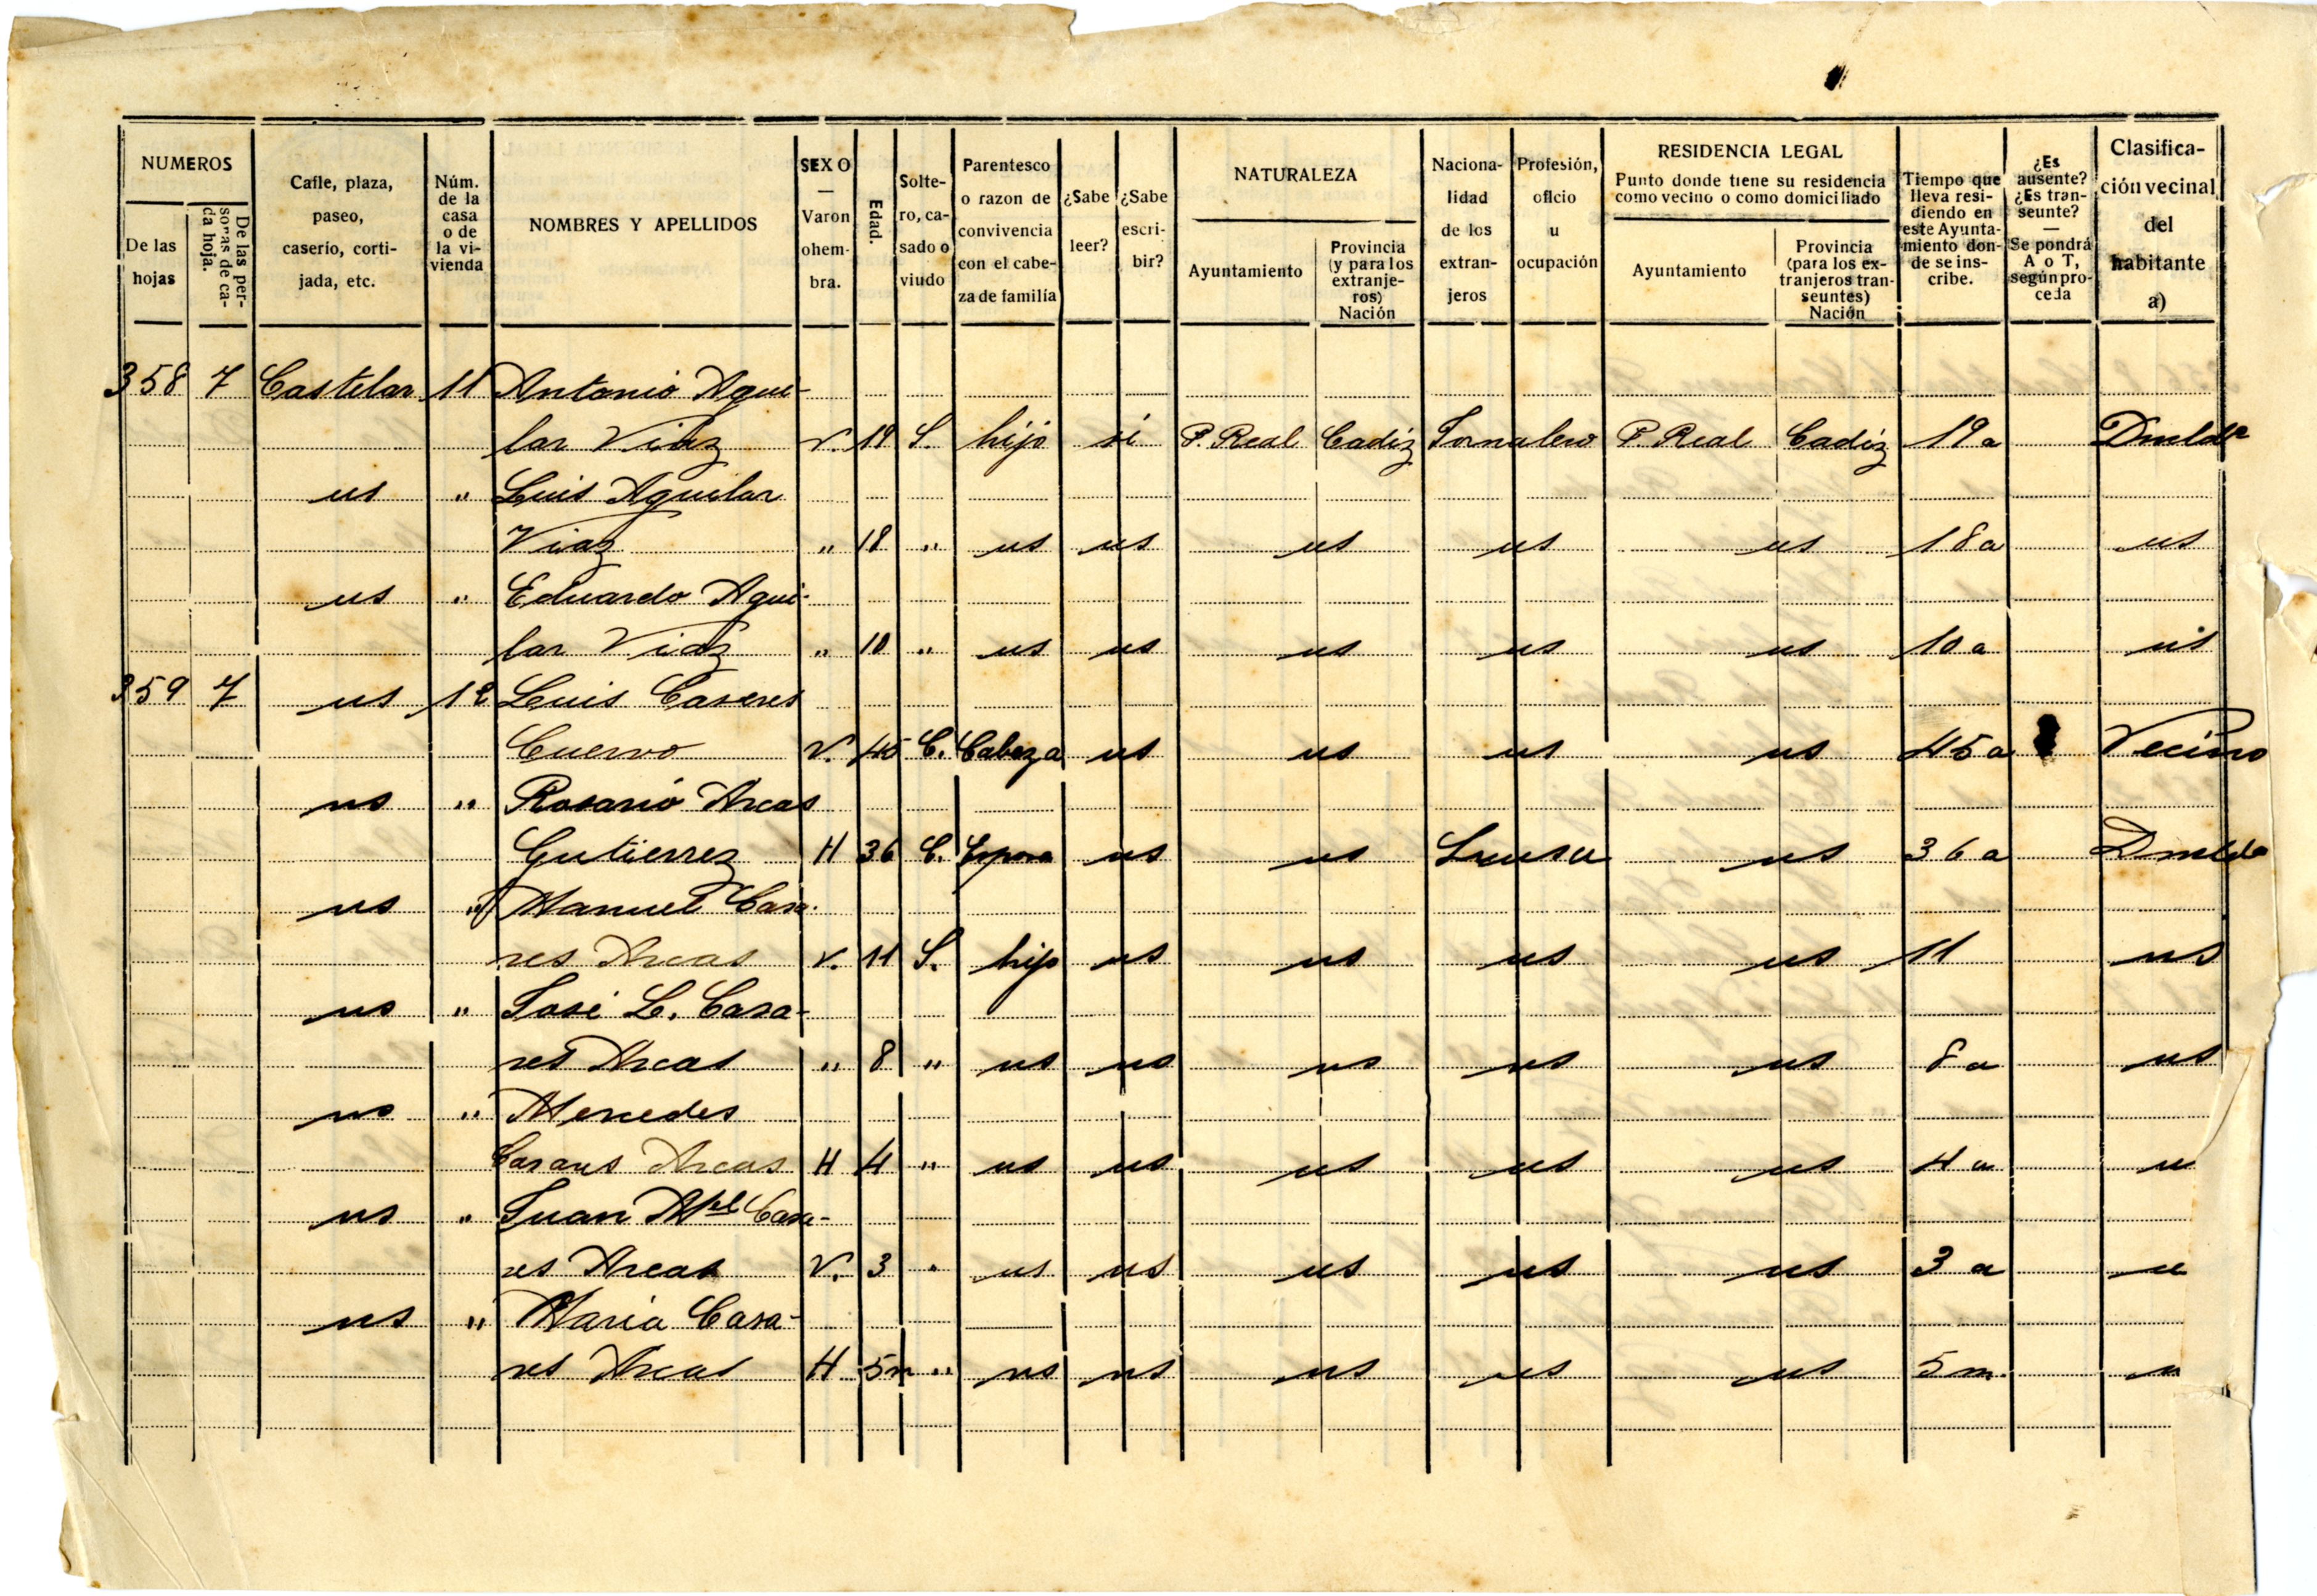 NUMEROS
De las hojas
De las personas de cada hoja.
Calle, plaza, paseo, caserío, cortijada, etc.
Núm. de la casa o de la vivienda
NOMBRES Y APELLIDOS
SEXO — Varon o hembra.
Edad.
Soltero, casado o viudo
Parentesco o razon de convivencia con el cabeza de familia
¿Sabe leer?
¿Sabe escribir?
NATURALEZA
Ayuntamiento
Provincia (y para los extranjeros) Nación
Nacionalidad de los extranjeros
Profesión, oficio u ocupación
RESIDENCIA LEGAL
Punto donde tiene su residencia como vecino o como domiciliado
Ayuntamiento
Provincia (para los extranjeros transeuntes) Nación
Tiempo que lleva residiendo en este Ayuntamiento donde se inscribe.
¿Es ausente? ¿Es transeunte? — Se pondrá A o T, según proceda
Clasificación vecinal del habitante a)
358 7 Castelar 11 Antonio Agui-
lar Viaz V. 19 S. hijo si P. Real Cadiz Jornalero P. Real Cadiz 19 a
us " Luis Aguilar
Viaz " 18 " us us us us us 18 a us
us " Eduardo Agui-
lar Viaz " 10 " us us us us us 10 a us
359 7 us 12 Luis Caseres
Cuervo V. 45 C. Cabeza us us us us 45 a Vecino
us " Rosario Arcas
Gutierrez H 36 C. Esposa us us us 36 a
us " Manuel Casa-
res Arcas V. 11 S. hijo us us us us 11 us
us " José L. Casa-
res Arcas " 8 " us us us us us 8 a us
us " Mercedes
Casares Arcas H 4 " us us us us us 4 a u
us " Juan Ml Casa-
res Arcas V. 3 " us us us us us 3 a u
us " Maria Casa-
res Arcas H 5m " us us us us us 5 m. u